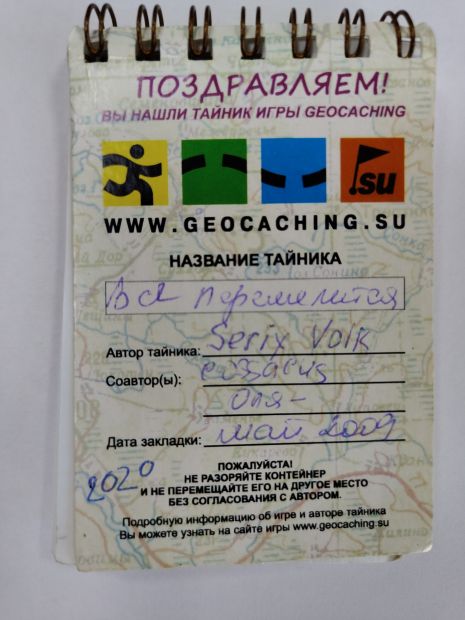 ПОЗДРАВЛЯЕМ!
ВЫ НАШЛИ ТАЙНИК ИГРЫ GEOCACHING
.su
WWW.GEOCACHING.SU
НАЗВАНИЕ ТАЙНИКА
Всё перемелится
Автор тайника: Serix Volk
Соавтор(ы):
Оля-
Дата закладки: май 2009
2020
ПОЖАЛУЙСТА!
НЕ РАЗОРЯЙТЕ КОНТЕЙНЕР
И НЕ ПЕРЕМЕЩАЙТЕ ЕГО НА ДРУГОЕ МЕСТО
БЕЗ СОГЛАСОВАНИЯ С АВТОРОМ.
Подробную информацию об игре и авторе тайника
Вы можете узнать на сайте игры www.geocaching.su